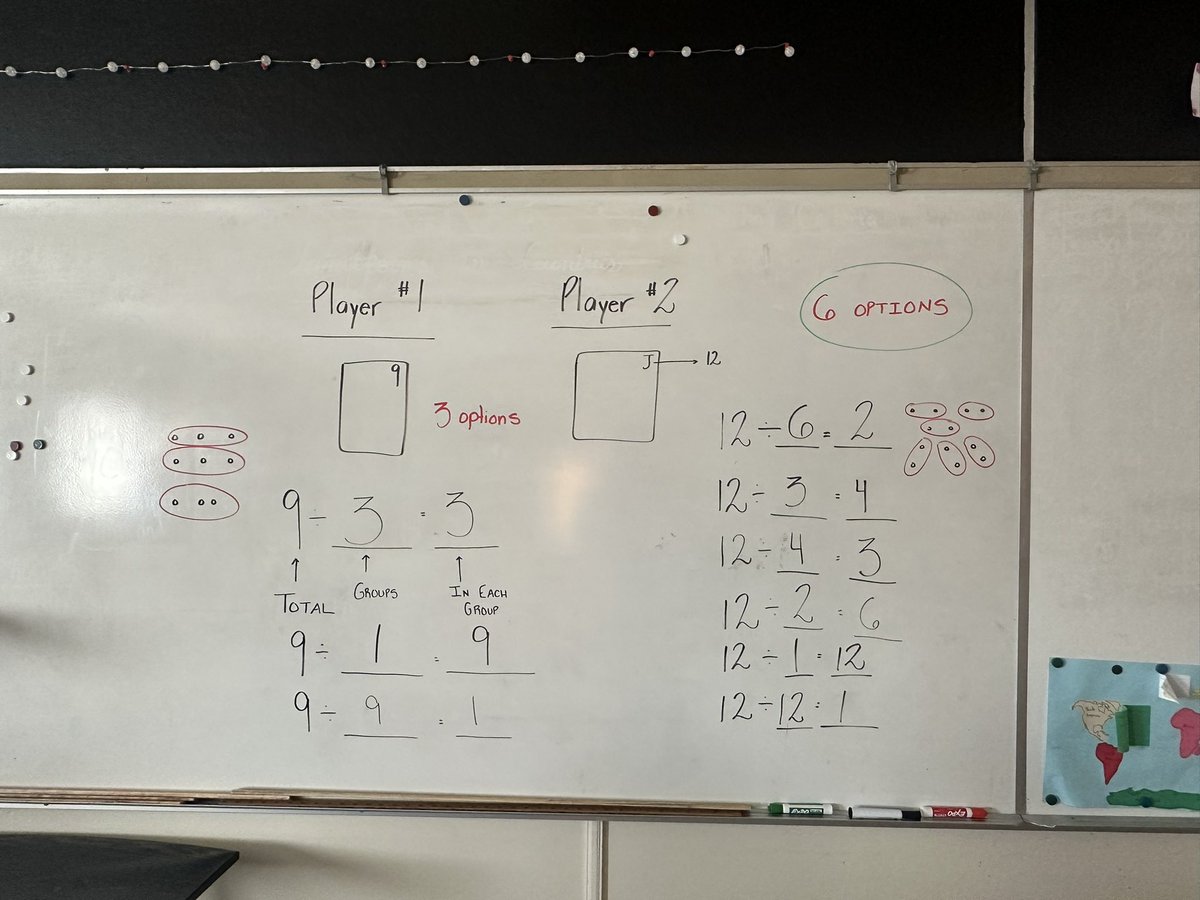 Player #1
9
3 options
9 ÷ 3 = 3
↑ ↑ ↑
TOTAL GROUPS IN EACH
GROUP
9 ÷ 1 = 9
9 ÷ 9 = 1
Player #2
J → 12
6 OPTIONS
12 ÷ 6 = 2
12 ÷ 3 = 4
12 ÷ 4 = 3
12 ÷ 2 = 6
12 ÷ 1 = 12
12 ÷ 12 = 1
EXPO